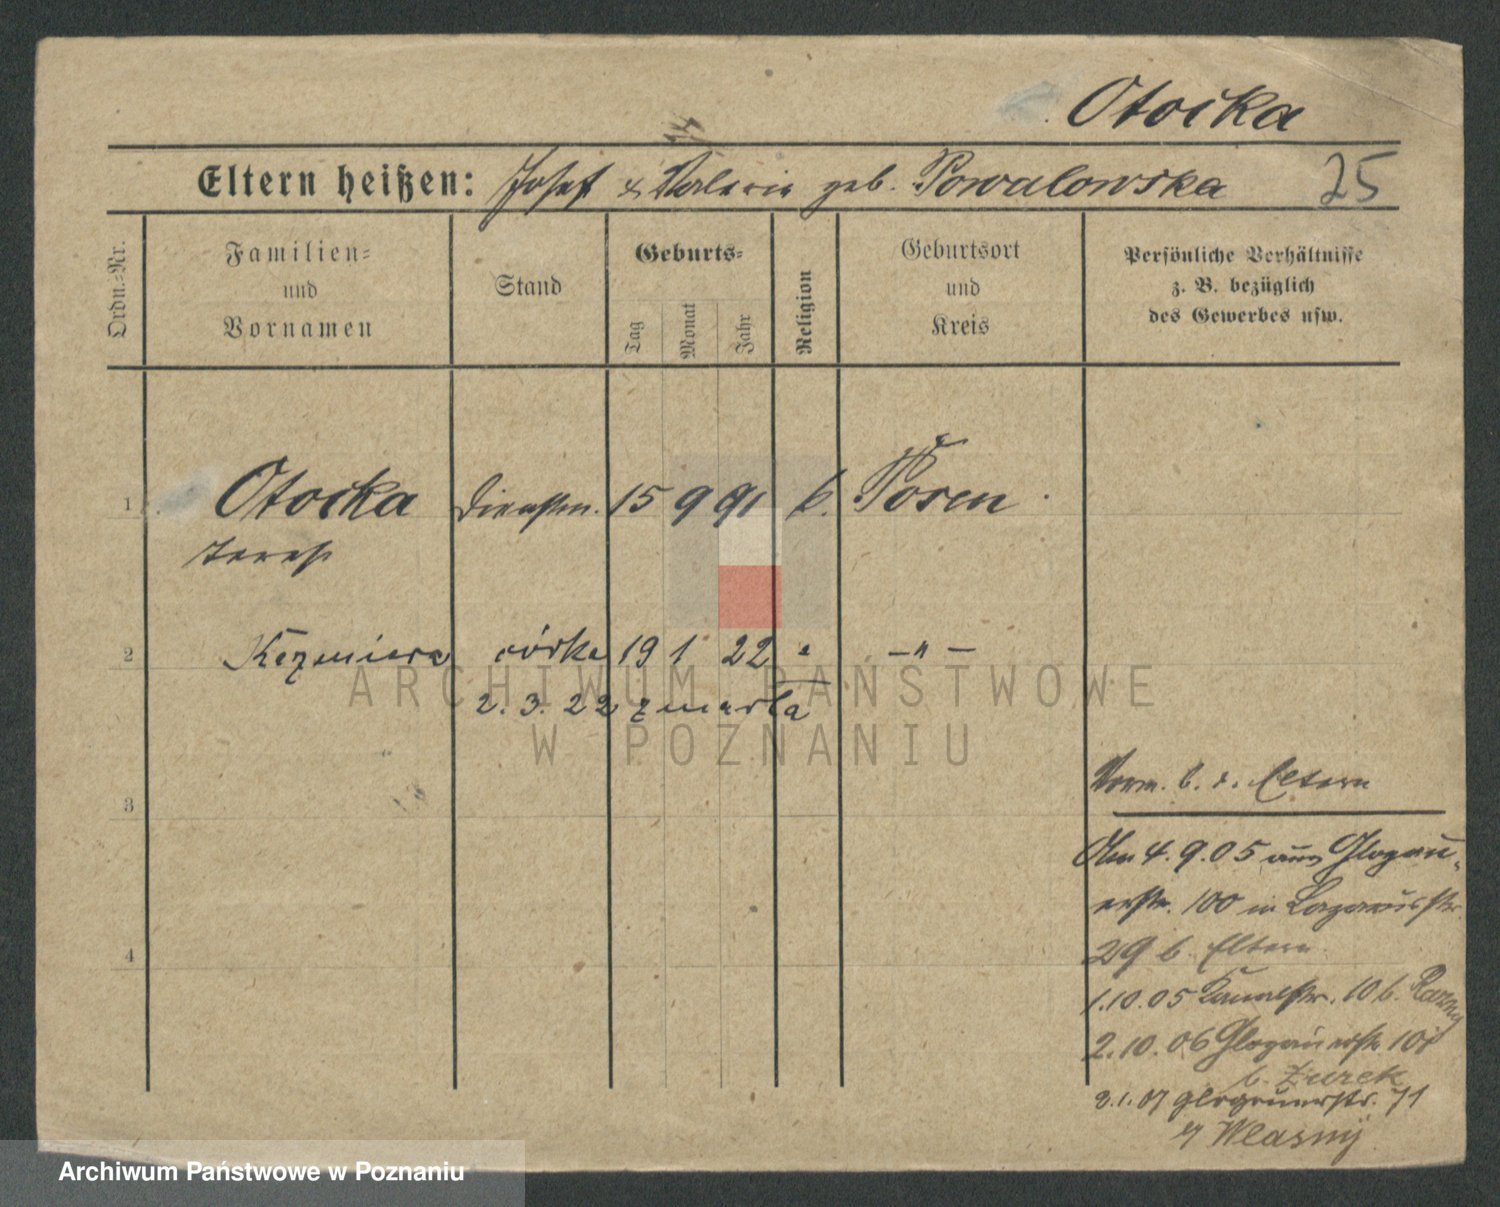 Otocka
Eltern heißen: Josef & Valerie geb. Powalowska 25
Ordn.-Nr.
Familien-
und
Vornamen
Stand
Geburts-
Tag
Monat
Jahr
Religion
Geburtsort
und
Kreis
Persönliche Verhältnisse
z. B. bezüglich
des Gewerbes usw.
1 Otocka Dienstm. 15 9 91 k. Posen
Teresa
2 Kazmiera córka 19 1 22 " – " –
2. 3. 22 zmarła
3
4
Vorm. b. d. Eltern
Am 4. 9. 05 aus Glogau-
erstr. 100 in Lazarusstr.
29 b. Eltern
1. 10. 05 Kanalstr. 10 b.
2. 10. 06 Glogauerstr.
b. Zurek
2. 1. 07 Glogauerstr. 71
Wlasny
ARCHIWUM PAŃSTWOWE
W POZNANIU
Archiwum Państwowe w Poznaniu